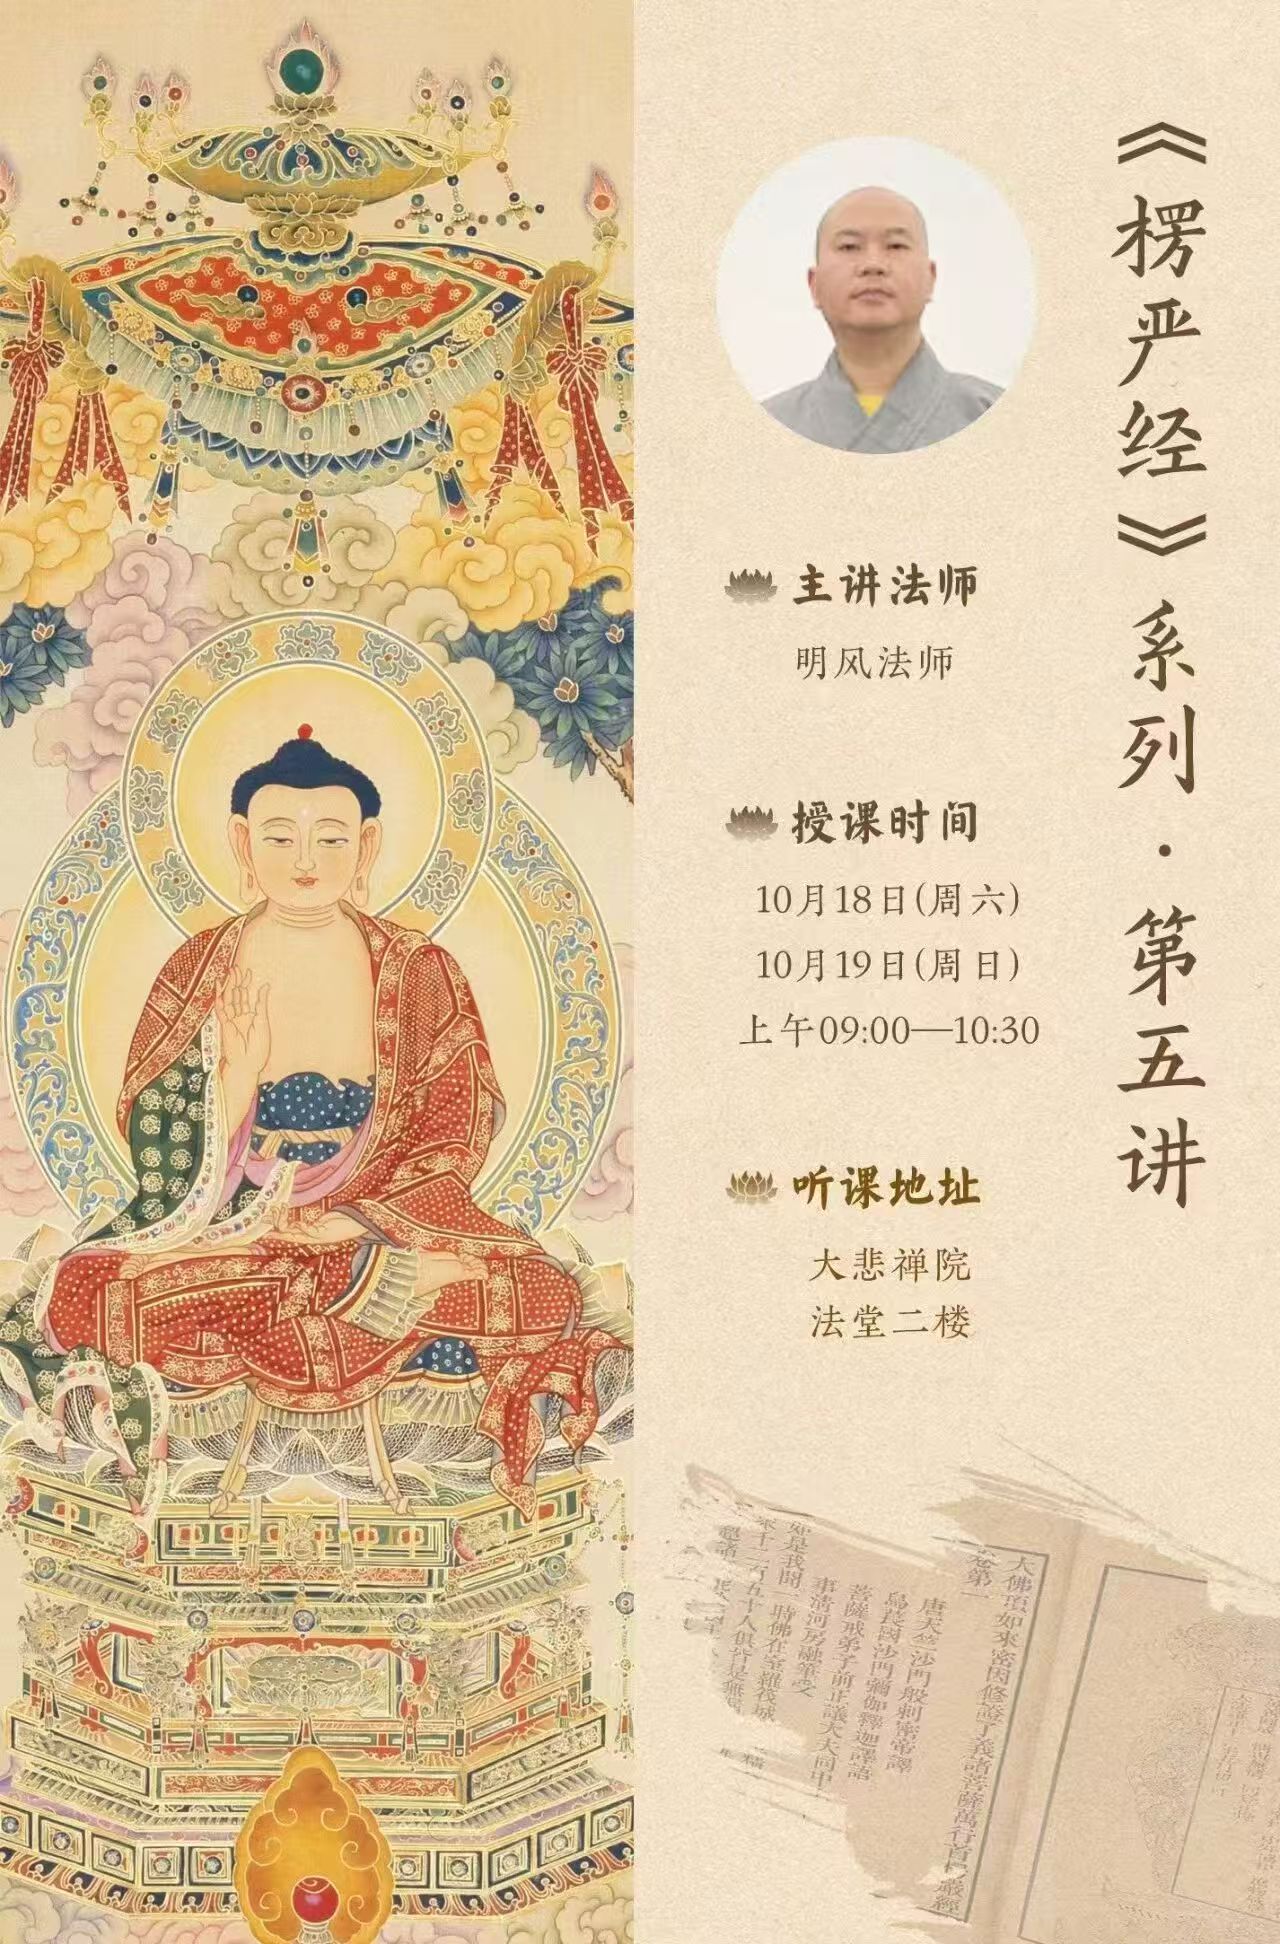 《楞严经》系列·第五讲
主讲法师
明风法师
授课时间
10月18日(周六)
10月19日(周日)
上午09:00—10:30
听课地址
大悲禅院
法堂二楼
大佛頂如來密因修證了義諸菩薩萬行首楞嚴經
卷第一
唐天竺沙門般剌密帝譯
烏萇國沙門彌伽釋迦譯語
菩薩戒弟子前正議大夫同中
事清河房融筆受
如是我聞一時佛在室羅筏城
眾千二百五十人俱皆是無漏